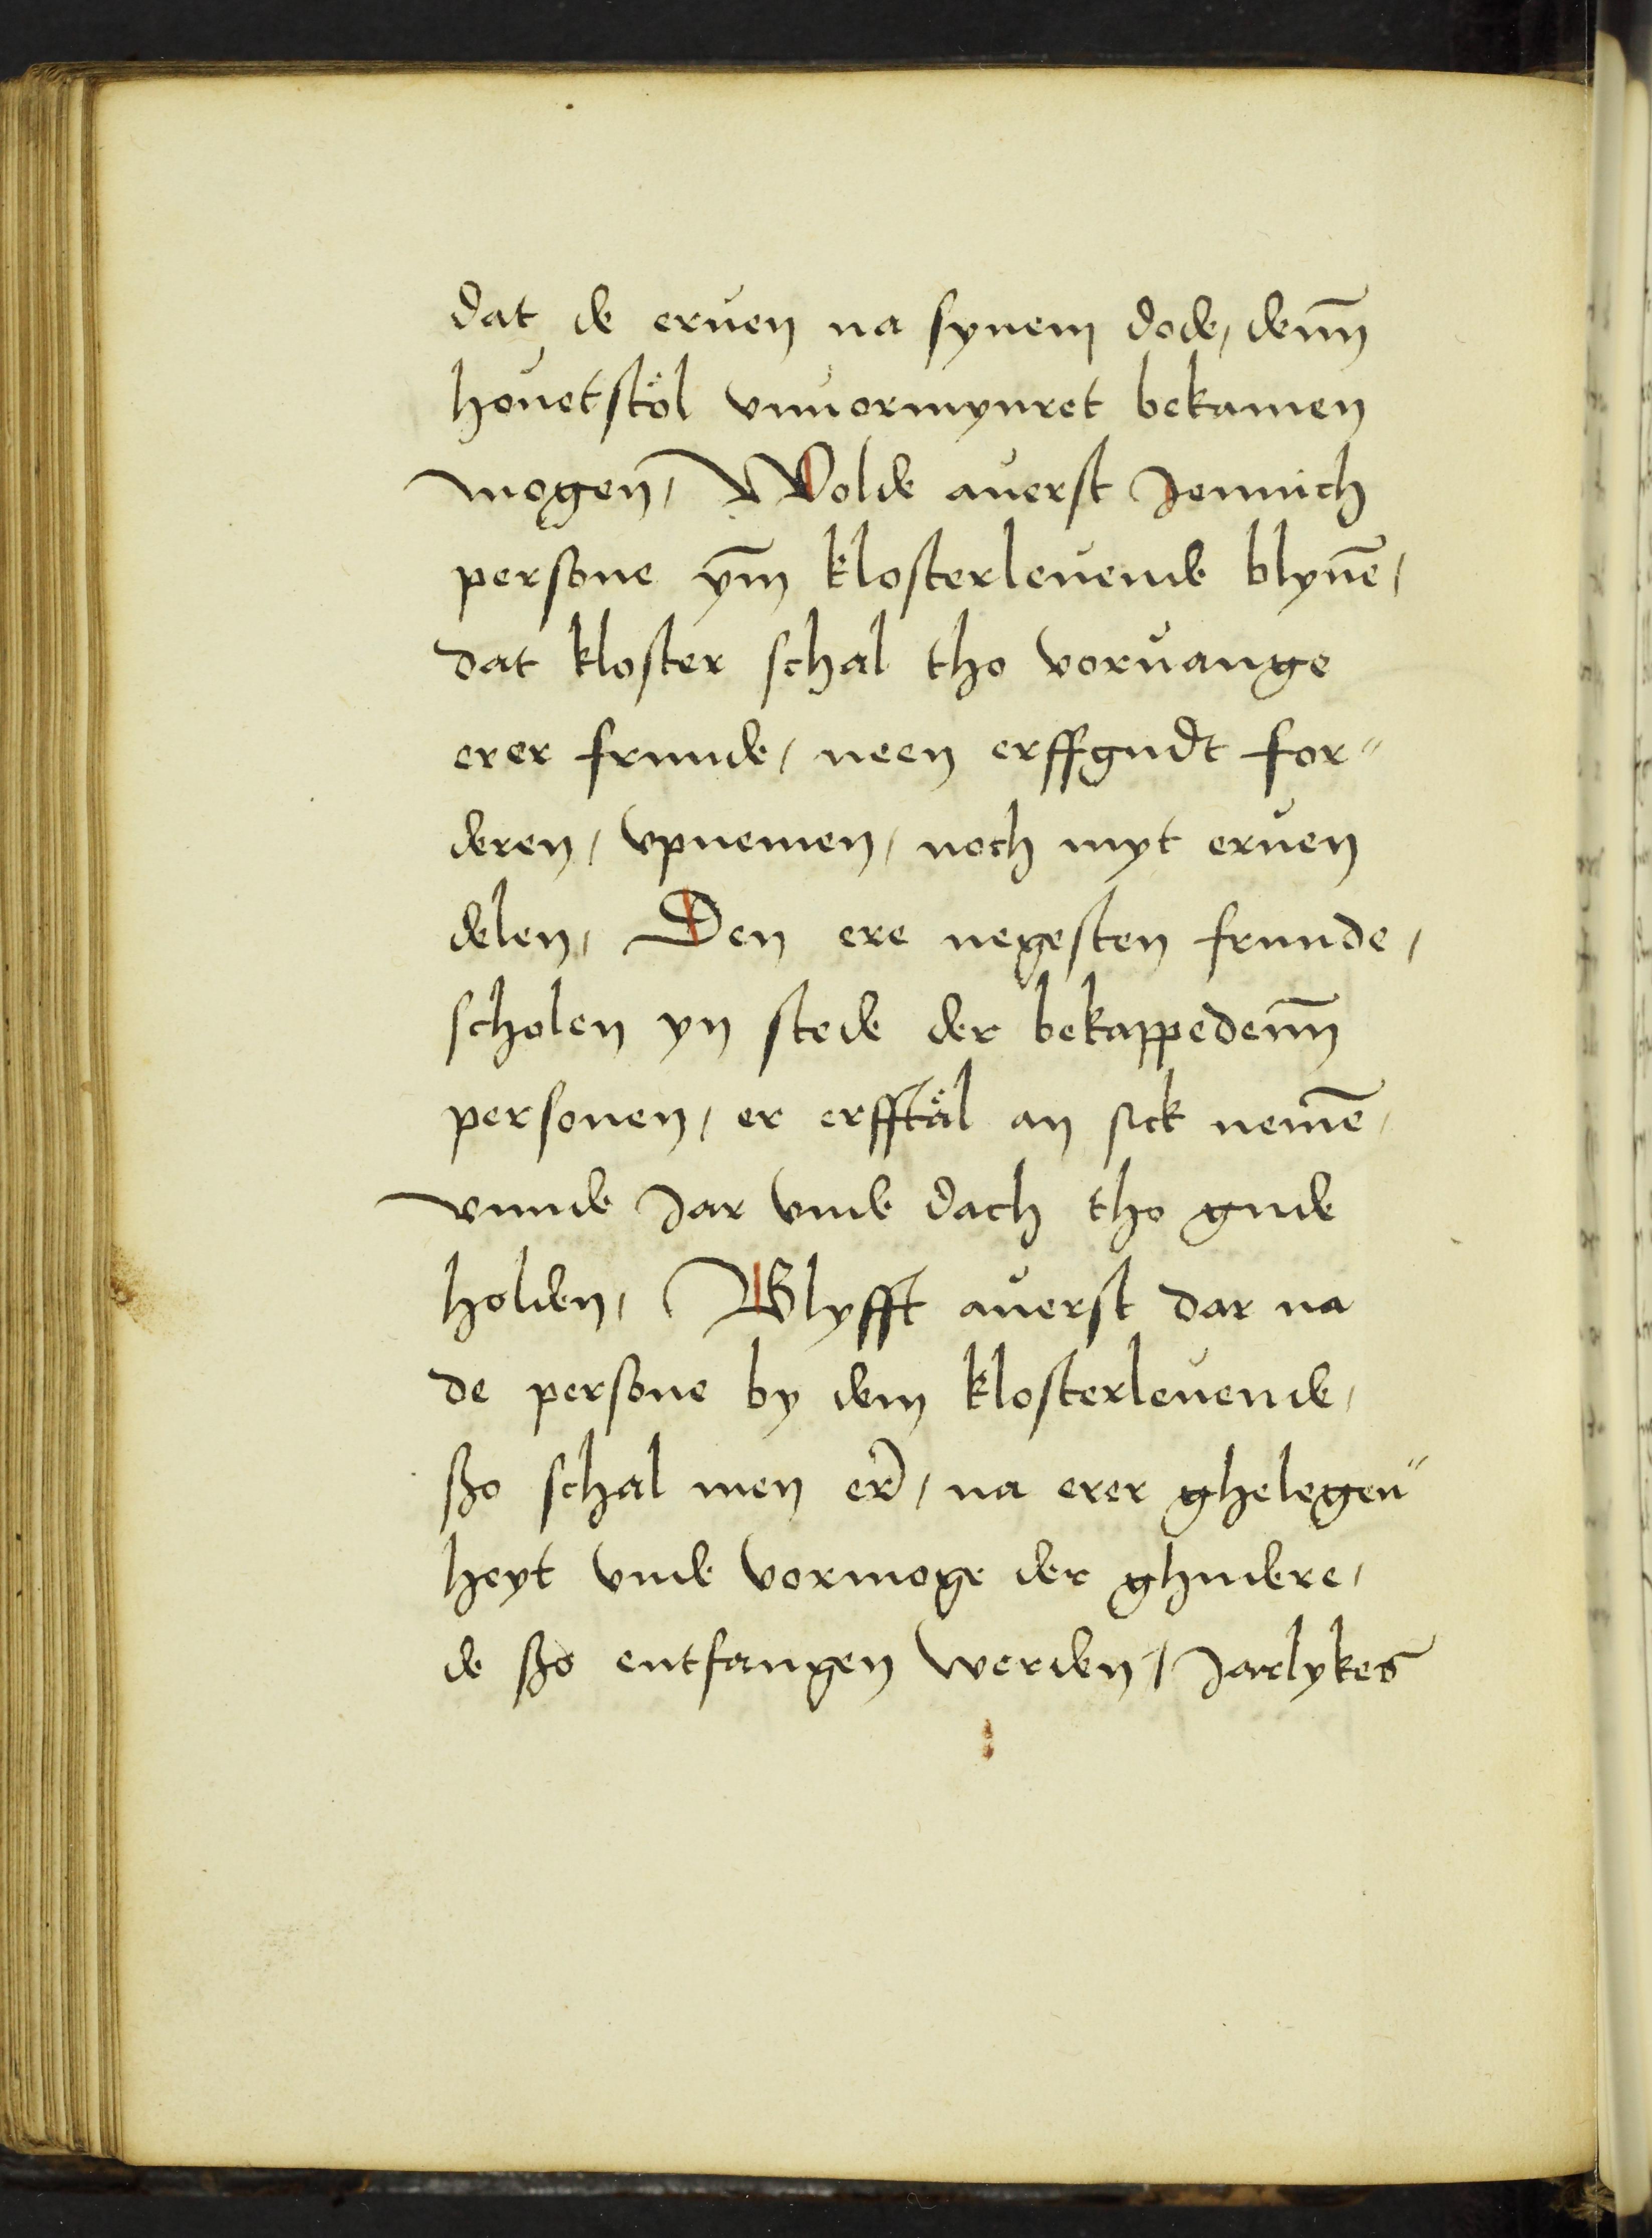 dat de eruen na synem dode, denn̄
houetstoͤl vnuormynret bekamen
mogen, Wolde auerst Jennich
persone ym̄ klosterleuende blyuē,
dat kloster schal tho voruange
erer frunde, neen erffgudt for"
deren, vpnemen, noch myt eruen
delen, Den ere negesten frunde,
scholen yn stede der bekappedenn̄
personen, er erfftaͤl an sick nemē,
vnnde Jar vnde dach tho gude
holden, Blyfft auerst dar na
de persone by dem klosterleuende,
ßo schal men er̄, na erer ghelegen"
heyt vnde vormoge der ghudere,
de ßo entfangen werden, Jarlykes